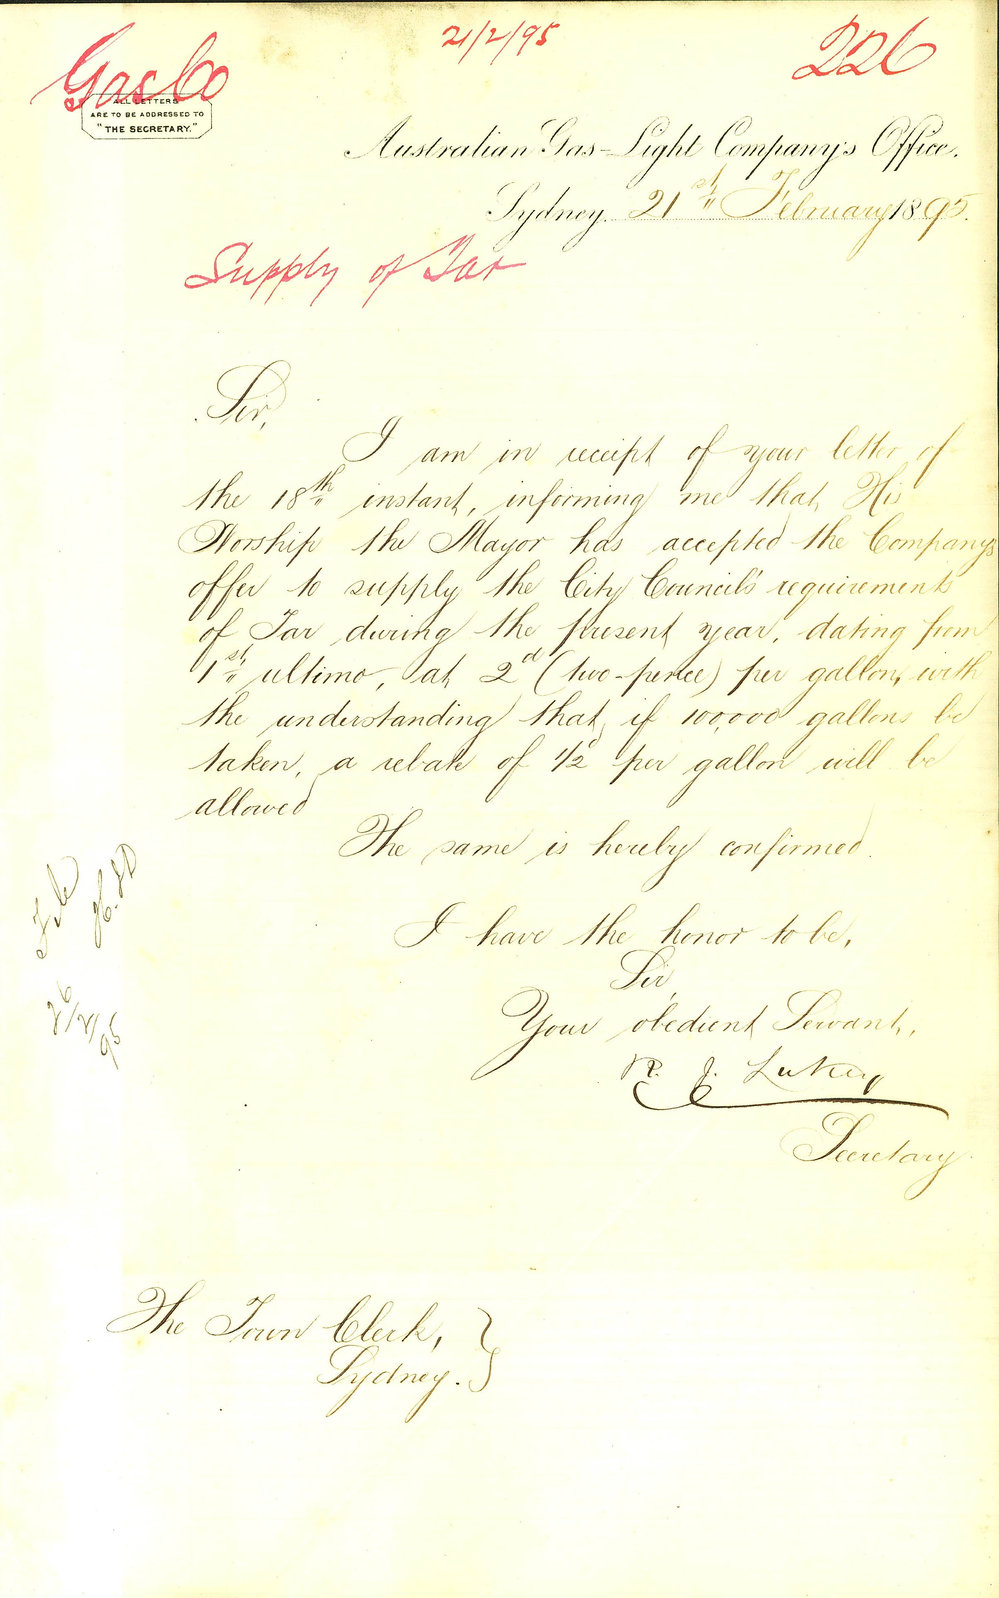 Gas Co
21/2/95
226
ALL LETTERS
ARE TO BE ADDRESSED TO
"THE SECRETARY."
Australian Gas-Light Company's Office.
Sydney. 21st February 1895.
Supply of Tar
Sir,
I am in receipt of your letter of
the 18th instant, informing me that His
Worship the Mayor has accepted the Company's
offer to supply the City Council's requirements
of Tar during the present year, dating from
1st ultimo, at 2d (two-pence) per gallon, with
the understanding that, if 100,000 gallons be
taken, a rebate of 1/2d per gallon will be
allowed
The same is hereby confirmed.
File
26/2/95
I have the honor to be,
Sir,
Your obedient Servant,
R. J. Lukey
Secretary.
The Town Clerk,
Sydney.